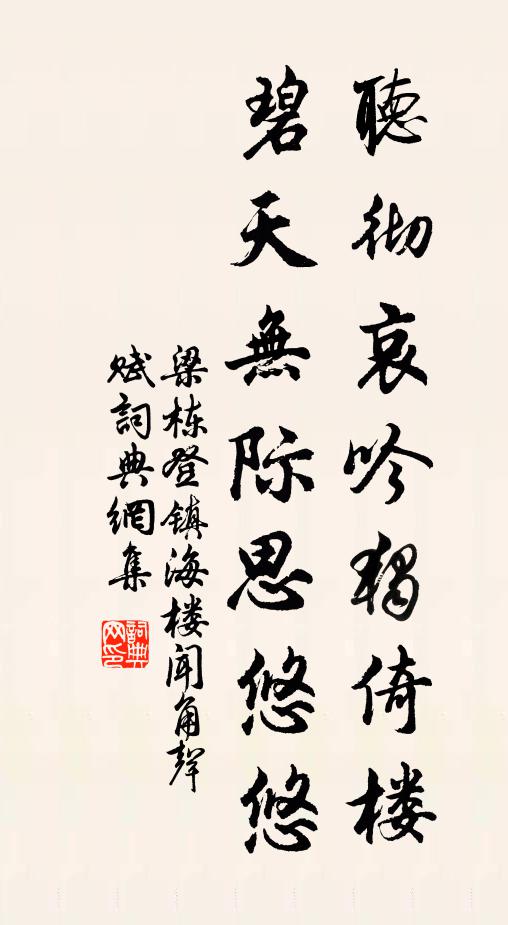 聽彻哀吟獨倚楼
碧天無际思悠悠
梁栋登镇海楼闻角聲
赋詞典網集
詞典网印